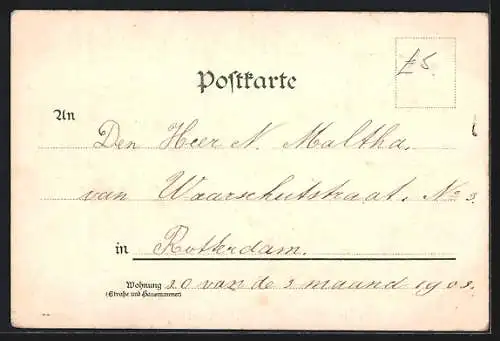 £5.
Postkarte
An
Den Heer N. Maltha.
van Waarschutstraat. No 3.
in Rotterdam.
Wohnung 20 van de 3 maand 1903.
(Straße und Hausnummer)